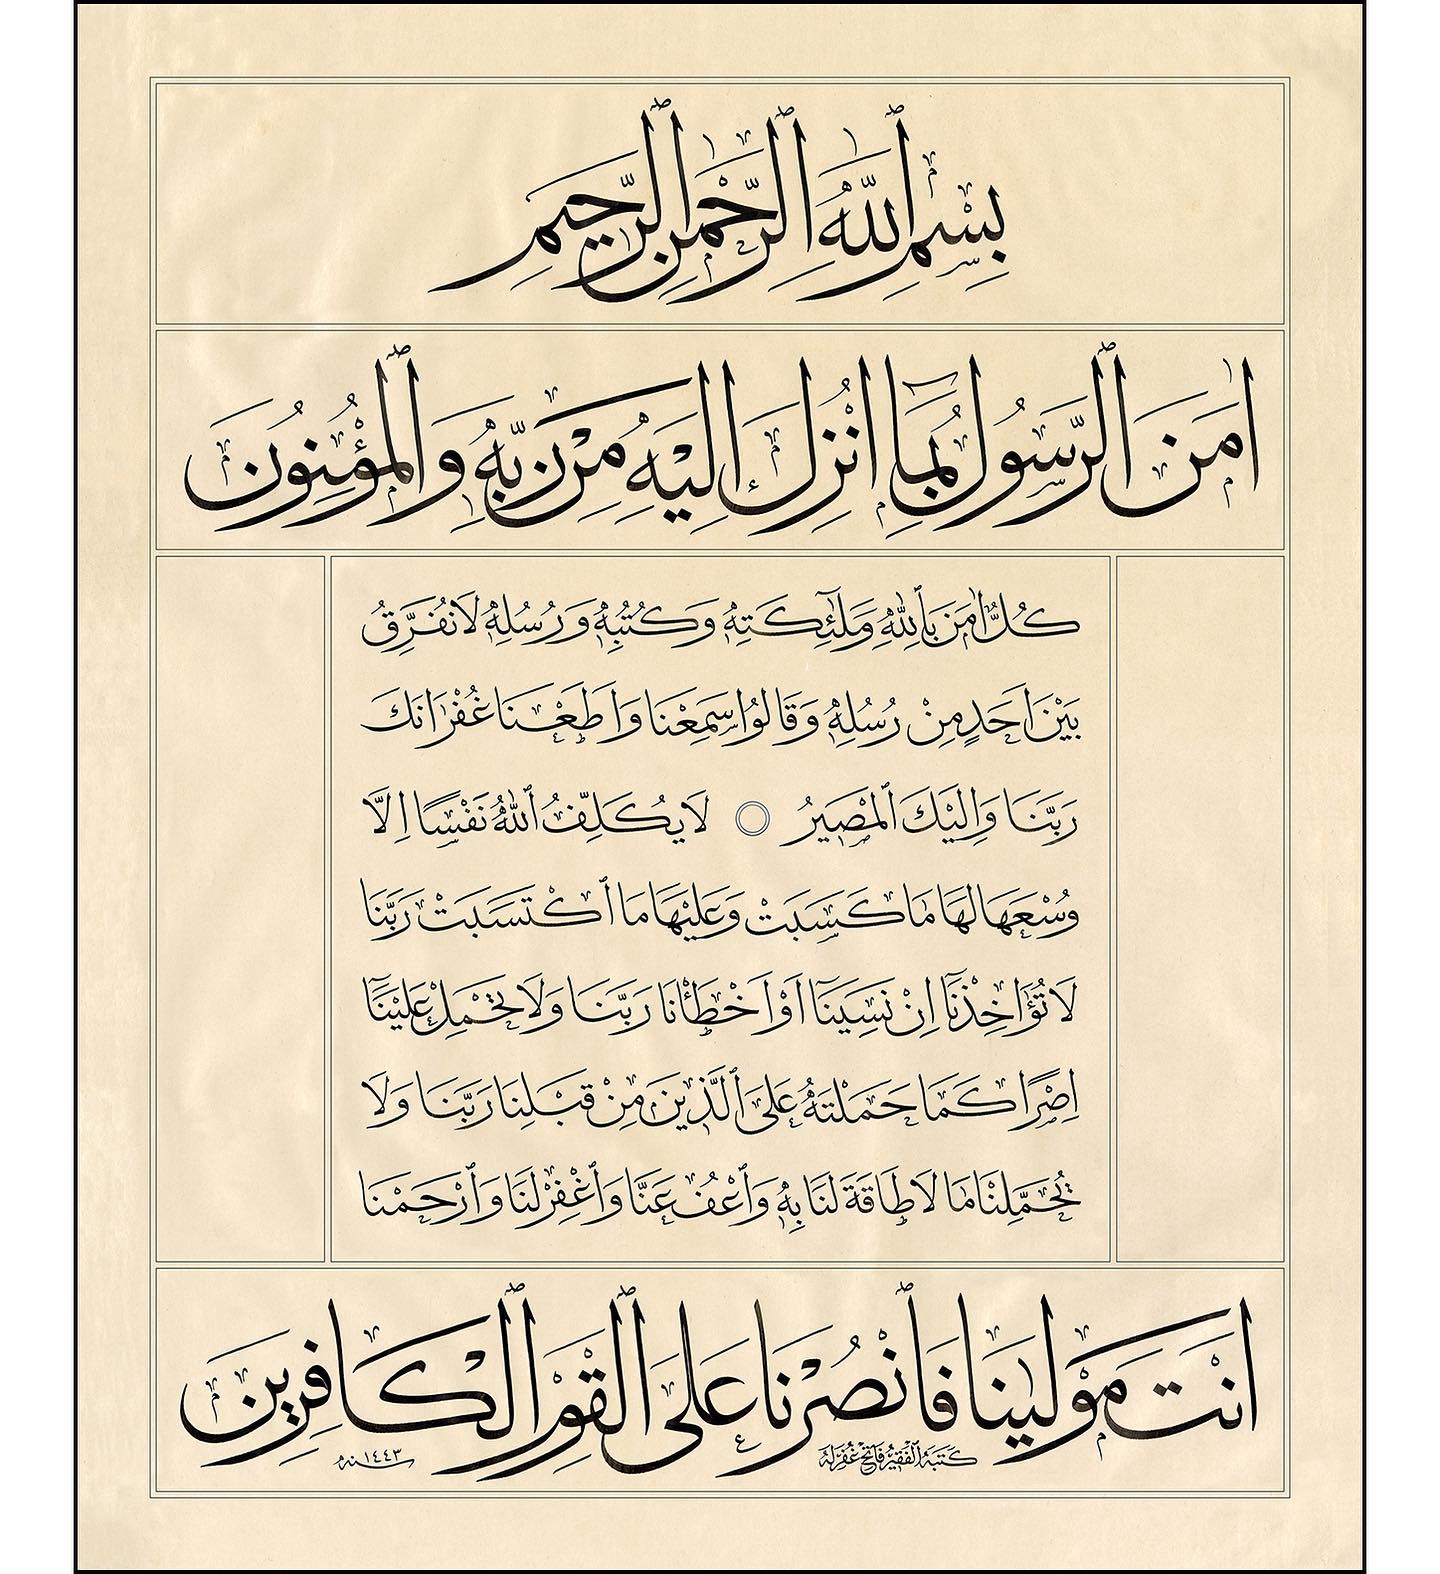 بِسْمِ ٱللّٰهِ ٱلرَّحْمٰنِ ٱلرَّحِيمِ
اٰمَنَ ٱلرَّسُولُ بِمَٓا اُنْزِلَ اِلَيْهِ مِنْ رَبِّهٖ وَٱلْمُؤْمِنُونَ
كُلٌّ اٰمَنَ بِٱللّٰهِ وَمَلٰٓئِكَتِهٖ وَكُتُبِهٖ وَرُسُلِهٖ لَا نُفَرِّقُ
بَيْنَ اَحَدٍ مِنْ رُسُلِهٖ وَقَالُوا سَمِعْنَا وَاَطَعْنَا غُفْرَانَكَ
رَبَّنَا وَاِلَيْكَ ٱلْمَصِيرُ ۝ لَا يُكَلِّفُ ٱللّٰهُ نَفْسًا اِلَّا
وُسْعَهَا لَهَا مَا كَسَبَتْ وَعَلَيْهَا مَا ٱكْتَسَبَتْ رَبَّنَا
لَا تُؤَاخِذْنَٓا اِنْ نَسِينَٓا اَوْ اَخْطَأْنَا رَبَّنَا وَلَا تَحْمِلْ عَلَيْنَٓا
اِصْرًا كَمَا حَمَلْتَهُ عَلَى ٱلَّذِينَ مِنْ قَبْلِنَا رَبَّنَا وَلَا
تُحَمِّلْنَا مَا لَا طَاقَةَ لَنَا بِهٖ وَٱعْفُ عَنَّا وَٱغْفِرْ لَنَا وَٱرْحَمْنَا
اَنْتَ مَوْلٰينَا فَٱنْصُرْنَا عَلَى ٱلْقَوْمِ ٱلْكَافِرِينَ
كَتَبَهُ ٱلْفَقِيرُ فَاتِح غُفِرَلَهُ
سنه ١٤٤٣